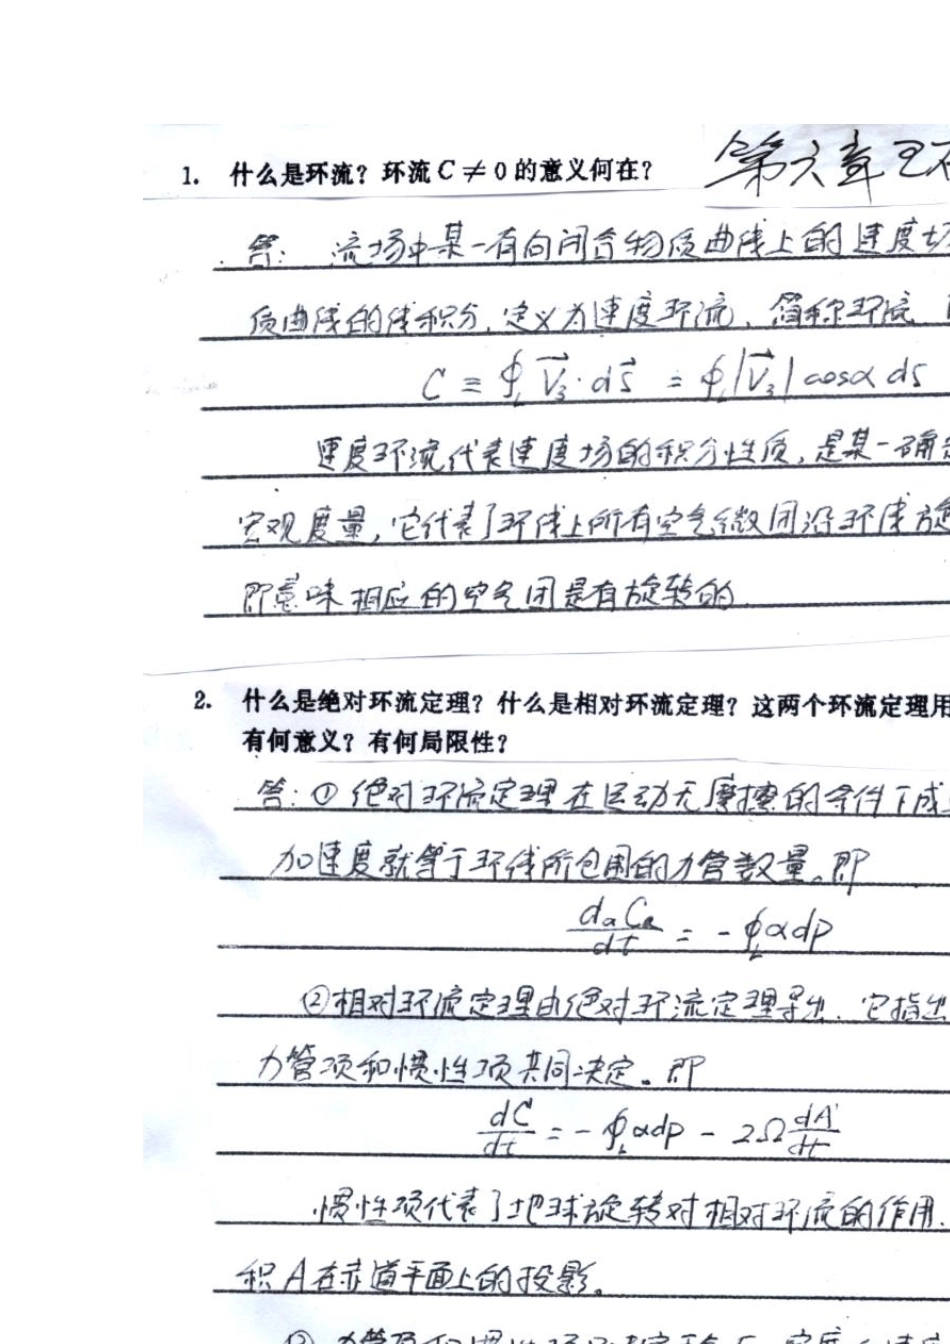 1. 什么是环流？环流 C ≠ 0 的意义何在？
第六章
答: 流场中某一有向闭合物质曲线上的速度
质曲线的线积分, 定义为速度环流, 简称环流
C ≡ ∮_L V⃗₃·ds⃗ = ∮_L |V⃗₃| cosα ds
速度环流代表速度场的积分性质, 是某一确
宏观度量, 它代表了环线上所有空气微团沿环线
即意味相应的空气团是有旋转的
2. 什么是绝对环流定理？什么是相对环流定理？这两个环流定理用
有何意义？有何局限性？
答: ① 绝对环流定理在运动无摩擦的条件下成
加速度就等于环线所包围的力管数量。即
dₐCₐ/dt = -∮_L αdp
②相对环流定理由绝对环流定理导出. 它指出
力管项和惯性项共同决定。即
dC/dt = -∮_L αdp - 2Ω dA'/dt
惯性项代表了地球旋转对相对环流的作用.
积 A 在赤道平面上的投影。